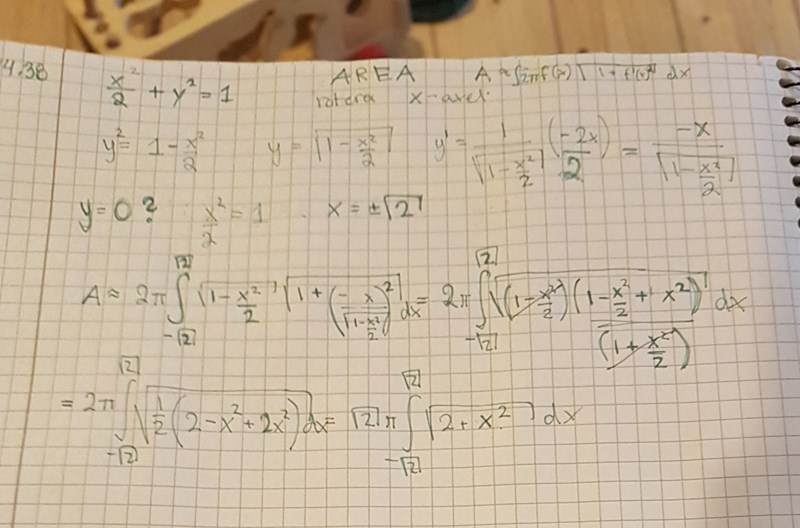 4.38
x²/2 + y² = 1    AREA    A ≈ ∫2πf(x) √(1 + f'(x)²) dx
rotera x-axel.
y² = 1 - x²/2    y = √(1 - x²/2)    y' = 1/√(1 - x²/2) (-2x/2) = -x/√(1 - x²/2)
y = 0 ?    x²/2 = 1    x = ±√2
A ≈ 2π ∫_{-√2}^{√2} √(1 - x²/2) √(1 + (-x/√(1 - x²/2))²) dx = 2π ∫_{-√2}^{√2} √((1 - x²/2)(1 - x²/2 + x²)/(1 + x²/2)) dx
= 2π ∫_{-√2}^{√2} √(1/2 (2 - x² + 2x²)) dx = √2 π ∫_{-√2}^{√2} √(2 + x²) dx